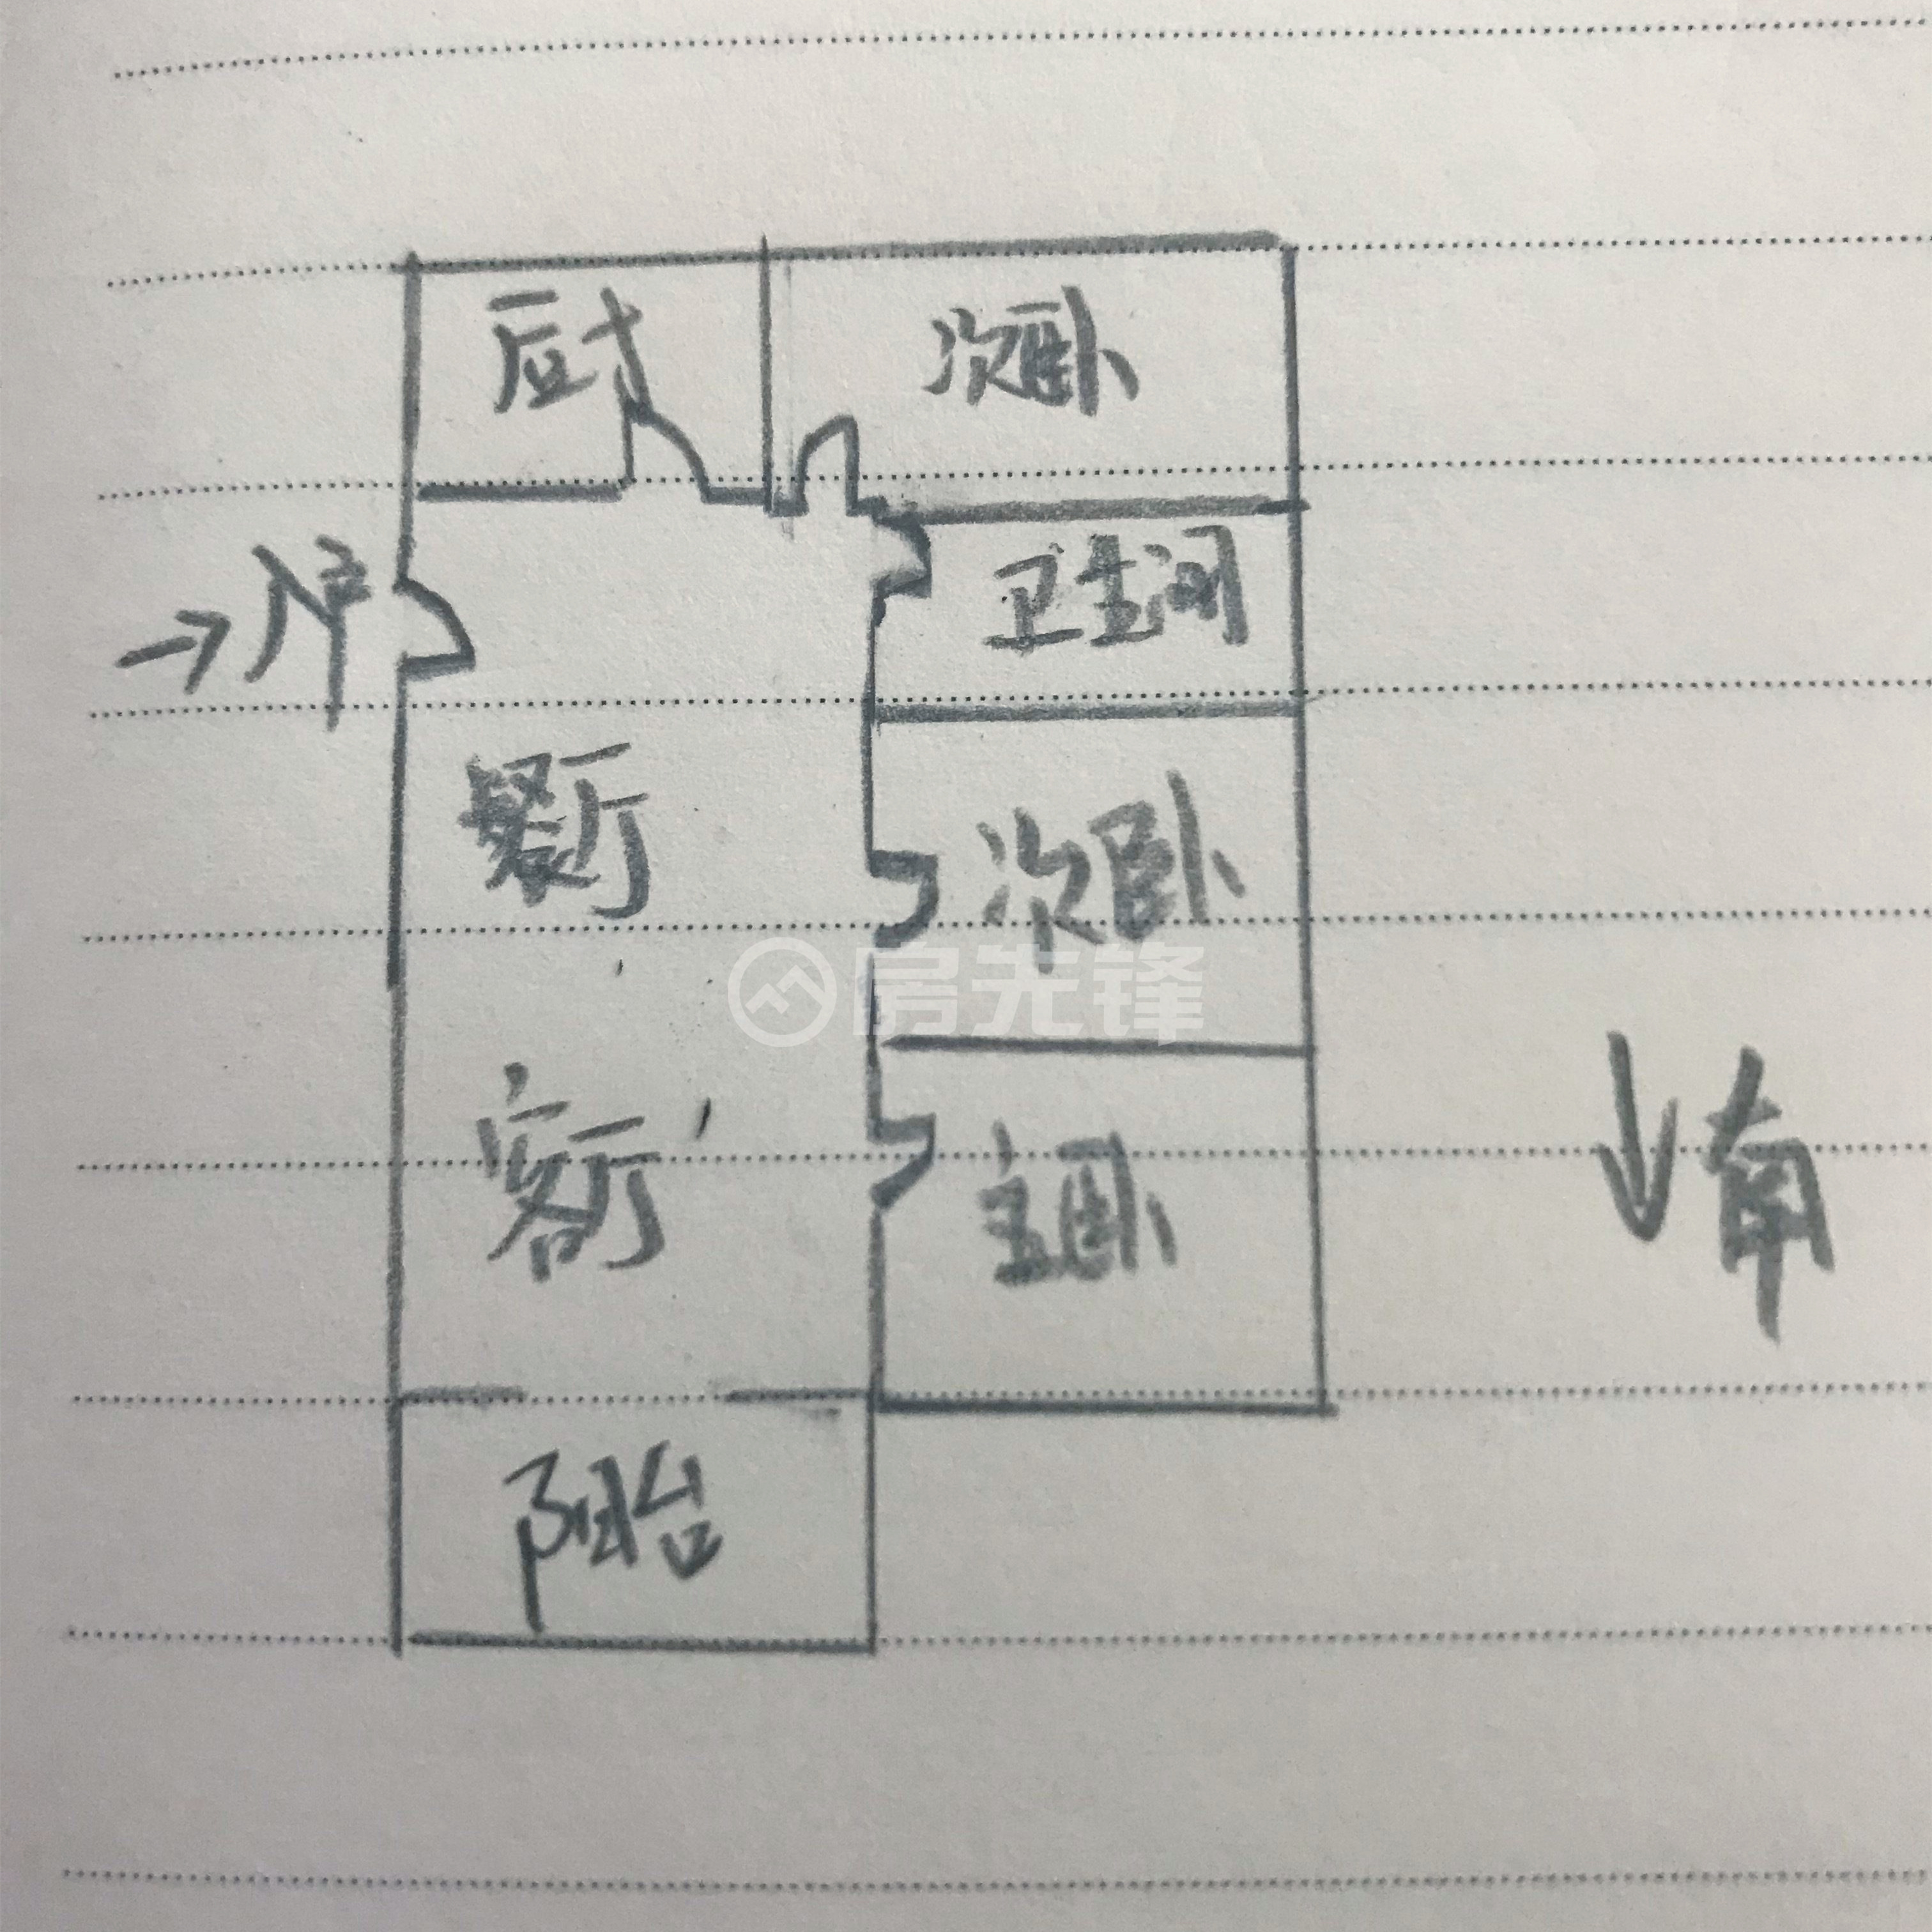 厨
次卧
卫生间
→入户
餐厅
次卧
房先锋
客厅
主卧
↓南
阳台